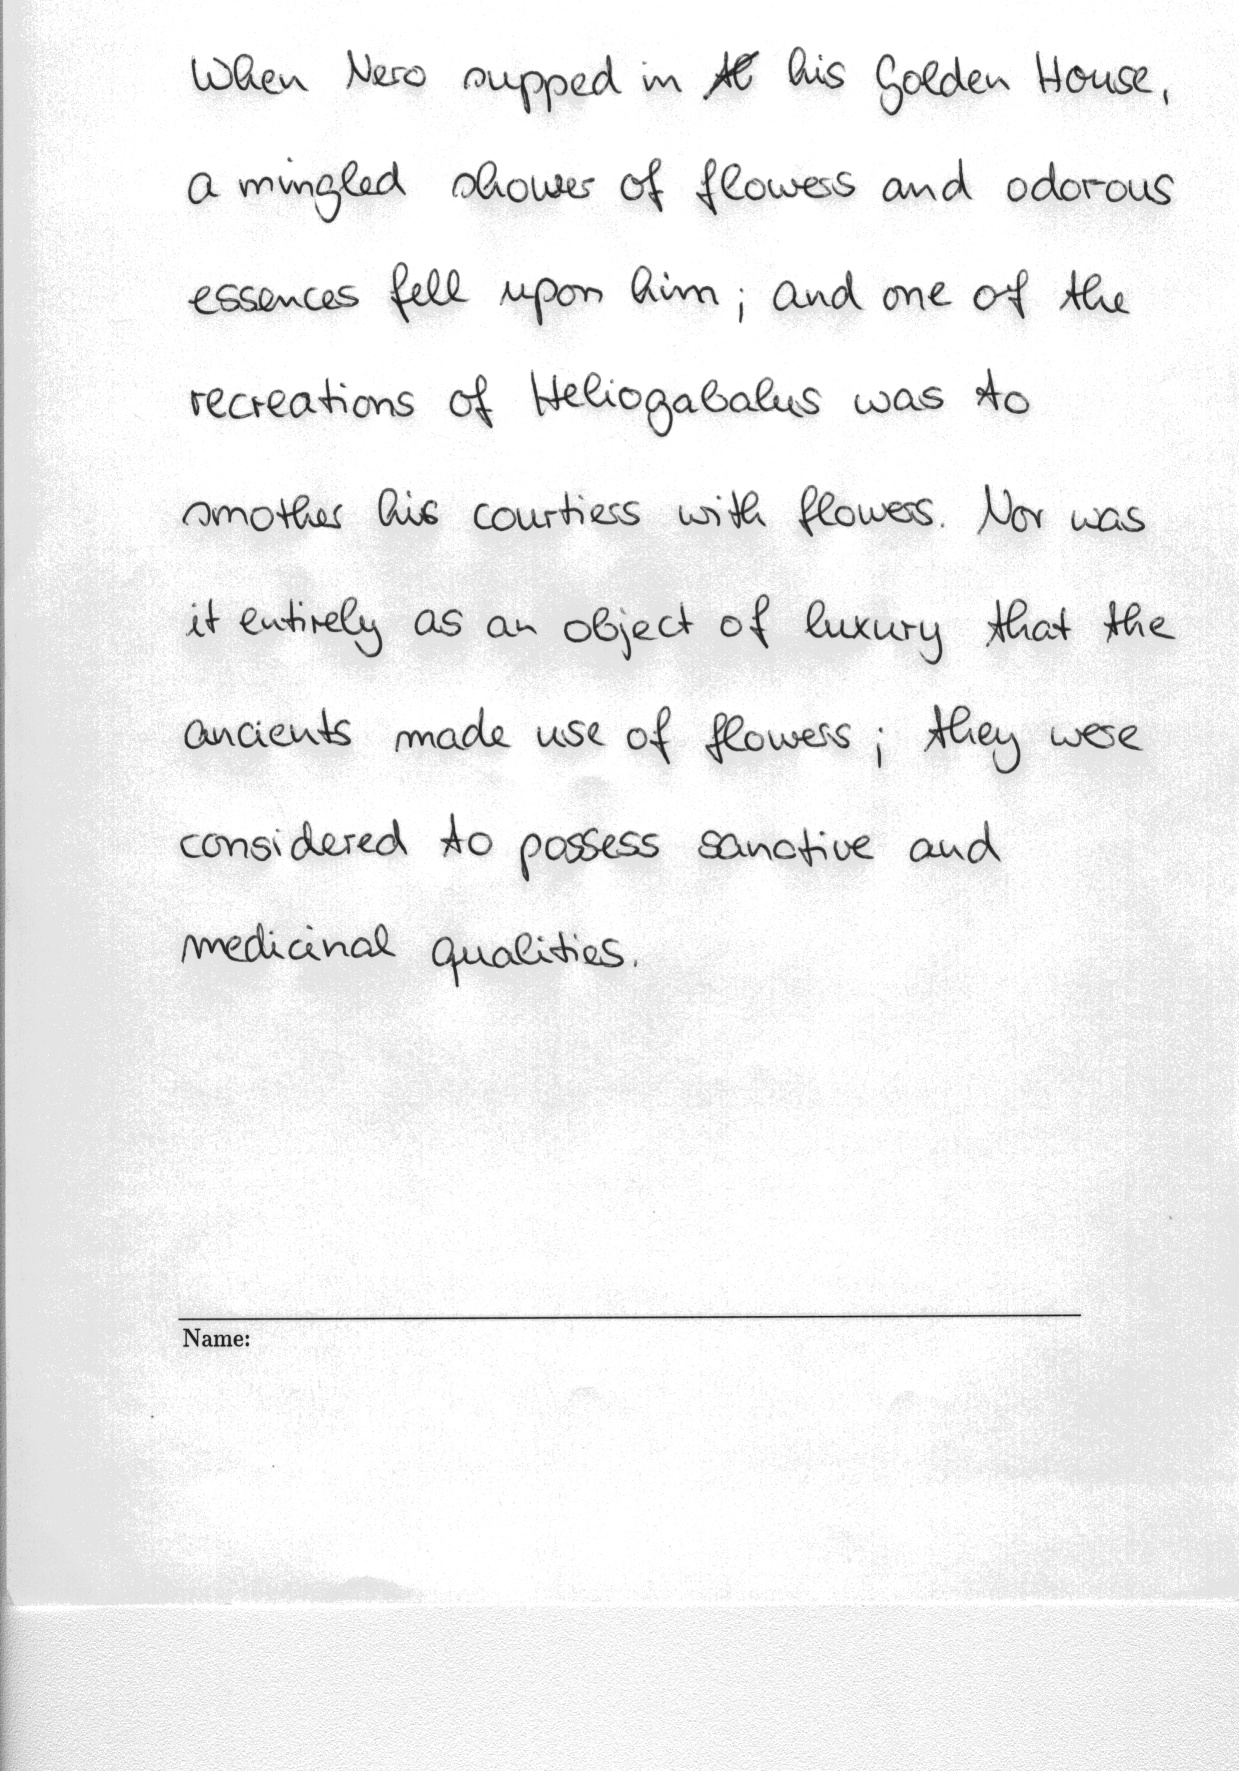 When Nero supped in his Golden House,
a mingled shower of flowers and odorous
essences fell upon him; and one of the
recreations of Heliogabalus was to
smother his courtiers with flowers. Nor was
it entirely as an object of luxury that the
ancients made use of flowers; they were
considered to possess sanative and
medicinal qualities.
Name: